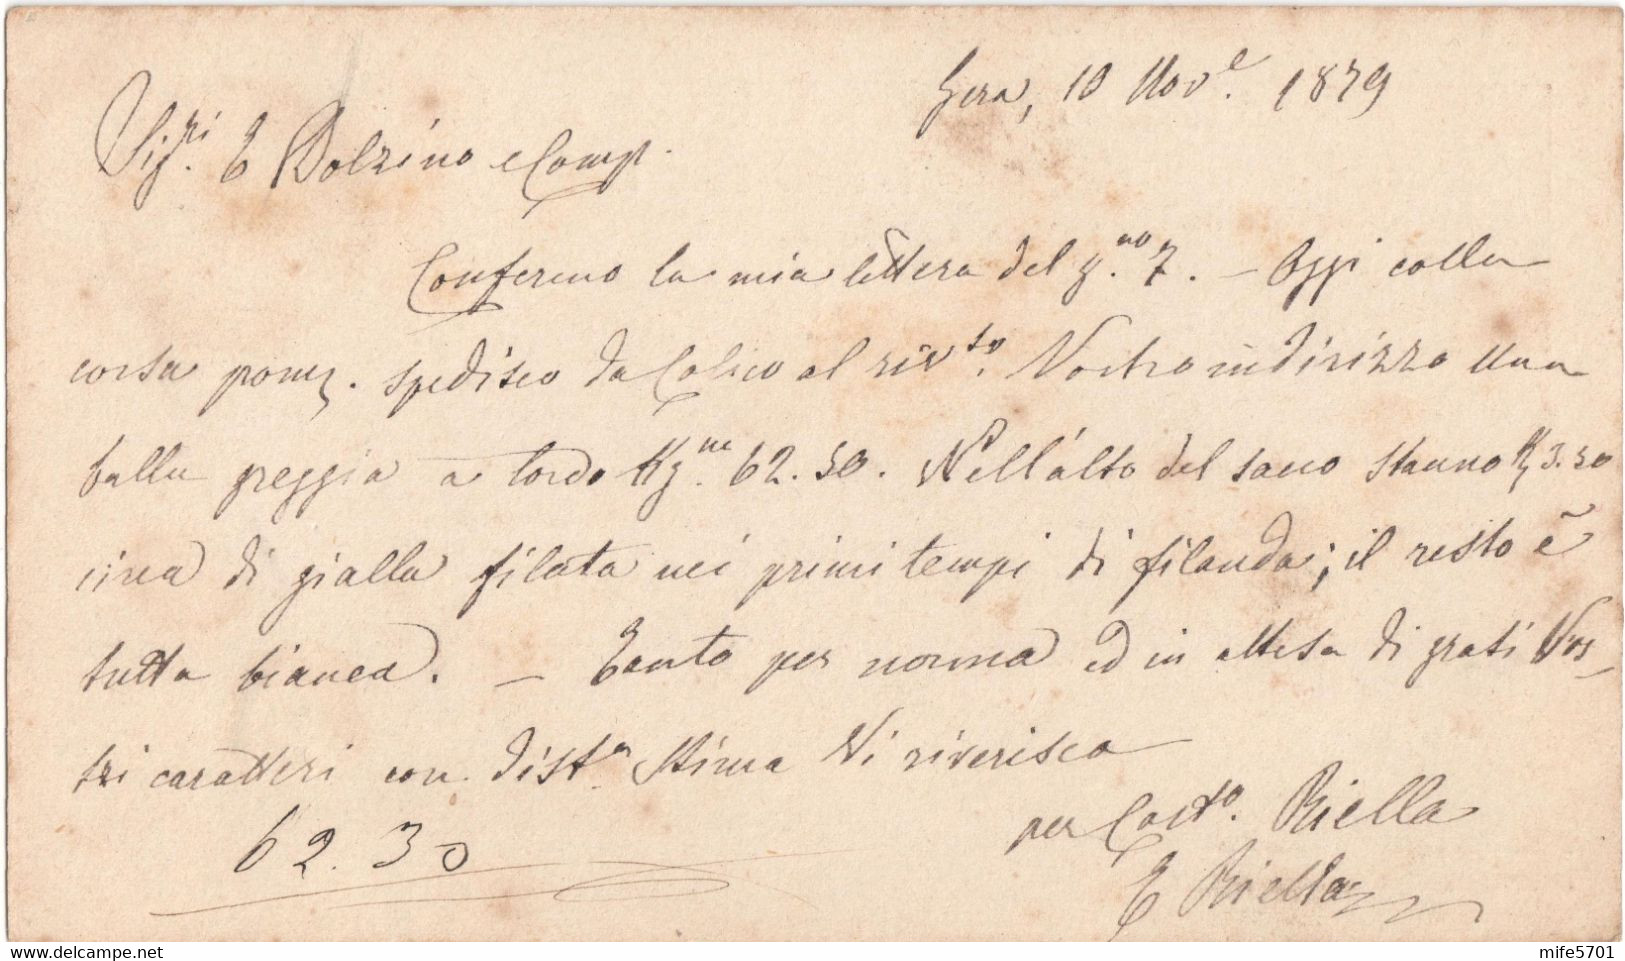 Gera, 10 Nov.e 1879
Sig.ri E Bolzino e Comp.
Confermo la mia lettera del g.no 7. — Oggi colla
corsa pom. spedisco da Colico al riv.to Vostro indirizzo una
balla greggia a lordo Kg.mi 62.30. Nell'alto del sacco stanno K 3.50
circa di gialla filata nei primi tempi di filanda; il resto è
tutta bianca. — Tanto per norma ed in attesa di grati Vos-
tri caratteri con dist.a stima Vi riverisco
per Cost.o Riella
62.30
E Riella
mife5701